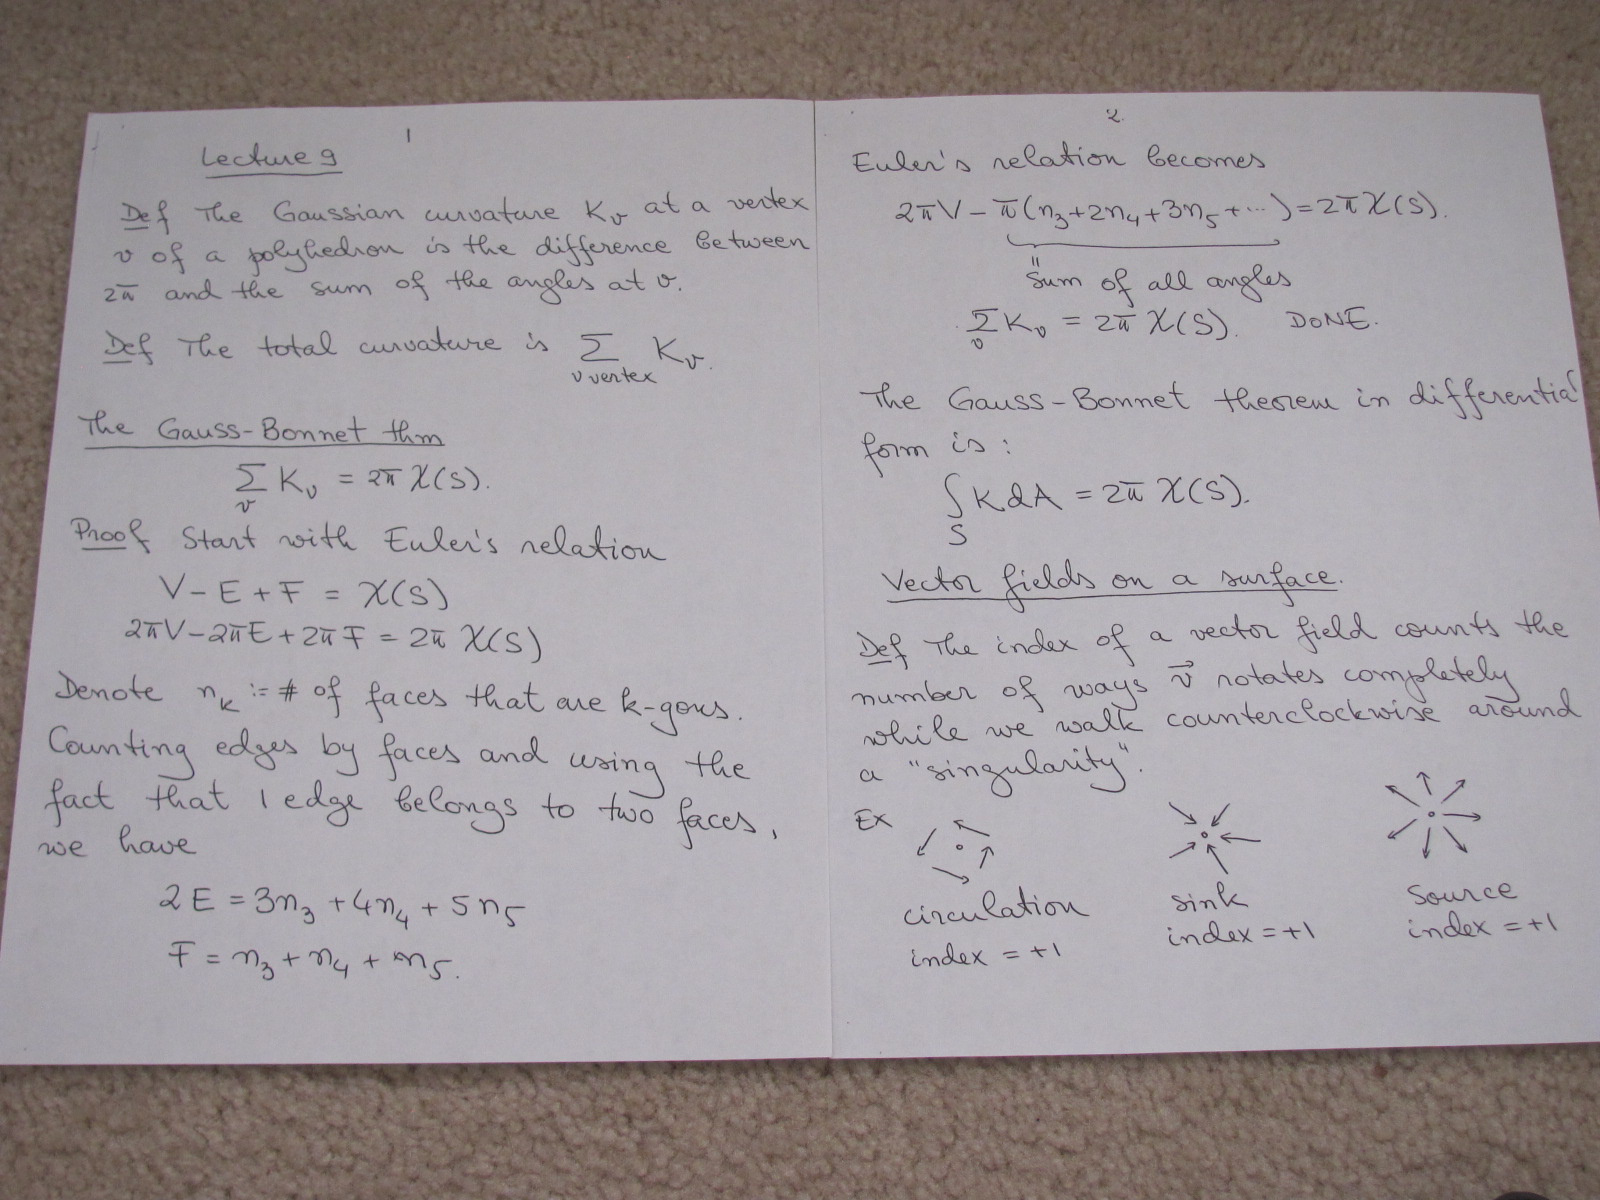 1
Lecture 9
Def The Gaussian curvature Kv at a vertex
v of a polyhedron is the difference between
2π and the sum of the angles at v.
Def The total curvature is Σ Kv.
v vertex
The Gauss-Bonnet thm
Σ Kv = 2π χ(S).
v
Proof Start with Euler's relation
V - E + F = χ(S)
2πV - 2πE + 2πF = 2π χ(S)
Denote nk := # of faces that are k-gons.
Counting edges by faces and using the
fact that 1 edge belongs to two faces,
we have
2E = 3n3 + 4n4 + 5n5
F = n3 + n4 + n5.
2.
Euler's relation becomes
2πV - π(n3+2n4+3n5+...) = 2πχ(S).
"
Sum of all angles
Σ Kv = 2π χ(S). DONE.
v
The Gauss-Bonnet theorem in differential
form is:
∫ K dA = 2π χ(S).
S
Vector fields on a surface.
Def The index of a vector field counts the
number of ways v⃗ rotates completely
while we walk counterclockwise around
a "singularity".
Ex
circulation
index = +1
sink
index = +1
source
index = +1